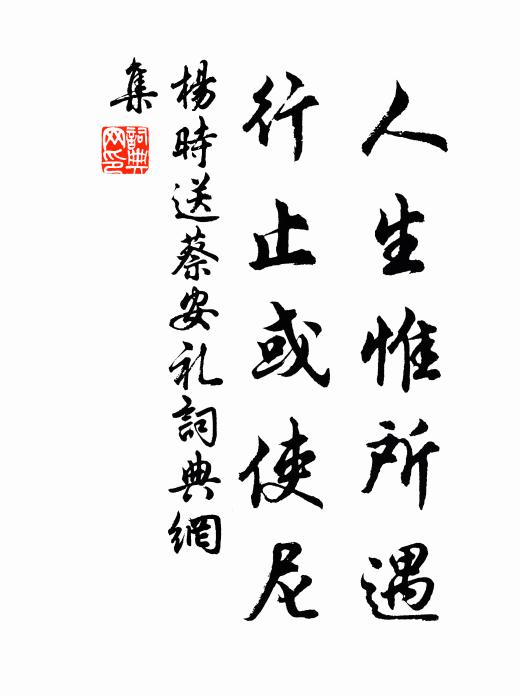 人生惟所遇
行止或使尼
楊時送蔡安礼詞典網
集
詞典網印